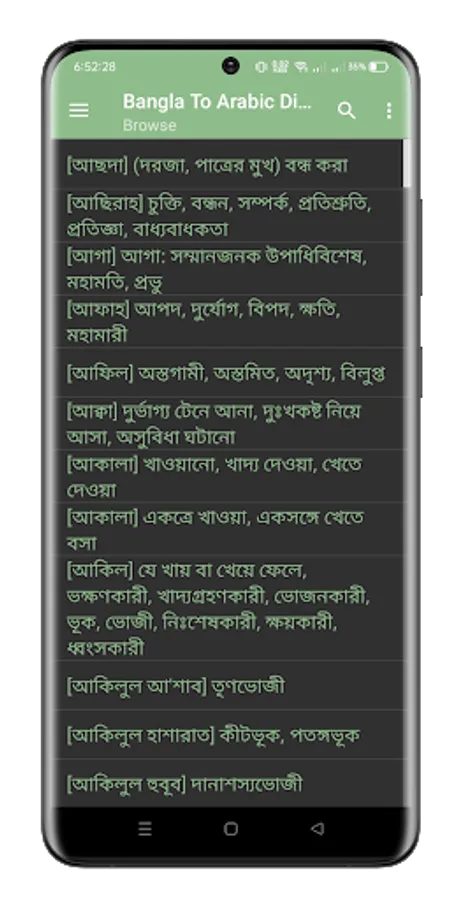 6:52:28
86%
Bangla To Arabic Di...
Browse
[আছদা] (দরজা, পাত্রের মুখ) বন্ধ করা
[আছিরাহ] চুক্তি, বন্ধন, সম্পর্ক, প্রতিশ্রুতি,
প্রতিজ্ঞা, বাধ্যবাধকতা
[আগা] আগা: সম্মানজনক উপাধিবিশেষ,
মহামতি, প্রভু
[আফাহ] আপদ, দুর্যোগ, বিপদ, ক্ষতি,
মহামারী
[আফিল] অস্তগামী, অস্তমিত, অদৃশ্য, বিলুপ্ত
[আক্বা] দুর্ভাগ্য টেনে আনা, দুঃখকষ্ট নিয়ে
আসা, অসুবিধা ঘটানো
[আকালা] খাওয়ানো, খাদ্য দেওয়া, খেতে
দেওয়া
[আকালা] একত্রে খাওয়া, একসঙ্গে খেতে
বসা
[আকিল] যে খায় বা খেয়ে ফেলে,
ভক্ষণকারী, খাদ্যগ্রহণকারী, ভোজনকারী,
ভূক, ভোজী, নিঃশেষকারী, ক্ষয়কারী,
ধ্বংসকারী
[আকিলুল আ'শাব] তৃণভোজী
[আকিলুল হাশারাত] কীটভূক, পতঙ্গভূক
[আকিলুল হুবূব] দানাশস্যভোজী